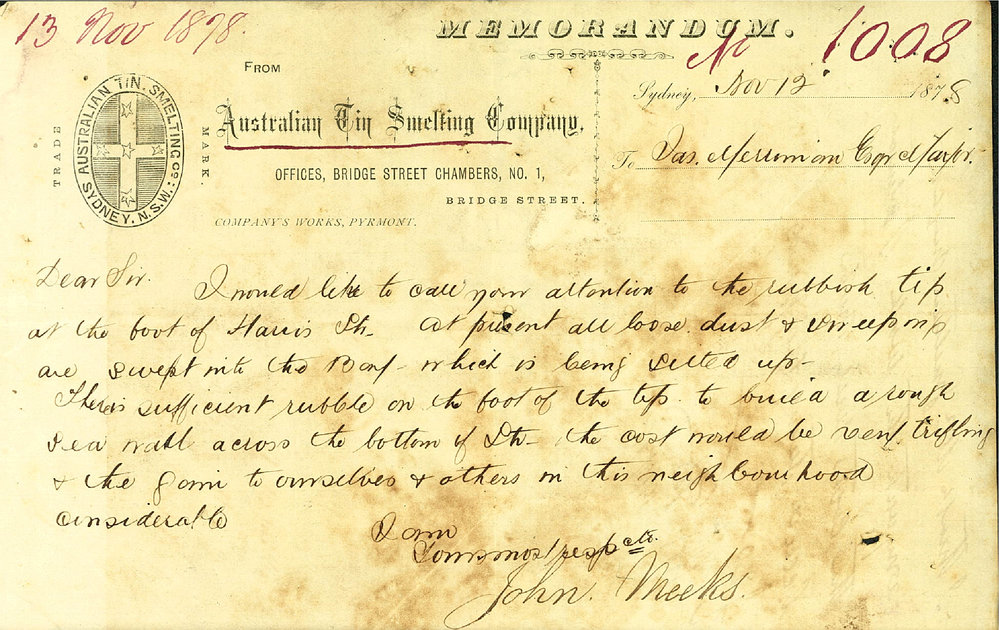 13 Nov 1878.
MEMORANDUM.
No 1008
FROM
Sydney, Nov 12 1878
TRADE
MARK.
AUSTRALIAN TIN SMELTING CO:
SYDNEY, N.S.W.
Australian Tin Smelting Company,
To Jas. Merriman Esqr Mayor.
OFFICES, BRIDGE STREET CHAMBERS, NO. 1,
BRIDGE STREET.
COMPANY'S WORKS, PYRMONT.
Dear Sir. I would like to call your attention to the rubbish tip
at the foot of Harris St- At present all loose dust & sweepings
are swept into the Bay- which is being silted up-
There is sufficient rubble on the foot of the tip to build a rough
sea wall across the bottom of St- the cost would be very trifling
& the gain to ourselves & others in this neighbourhood
considerable
I am
Yours most respctly
John. Meeks.